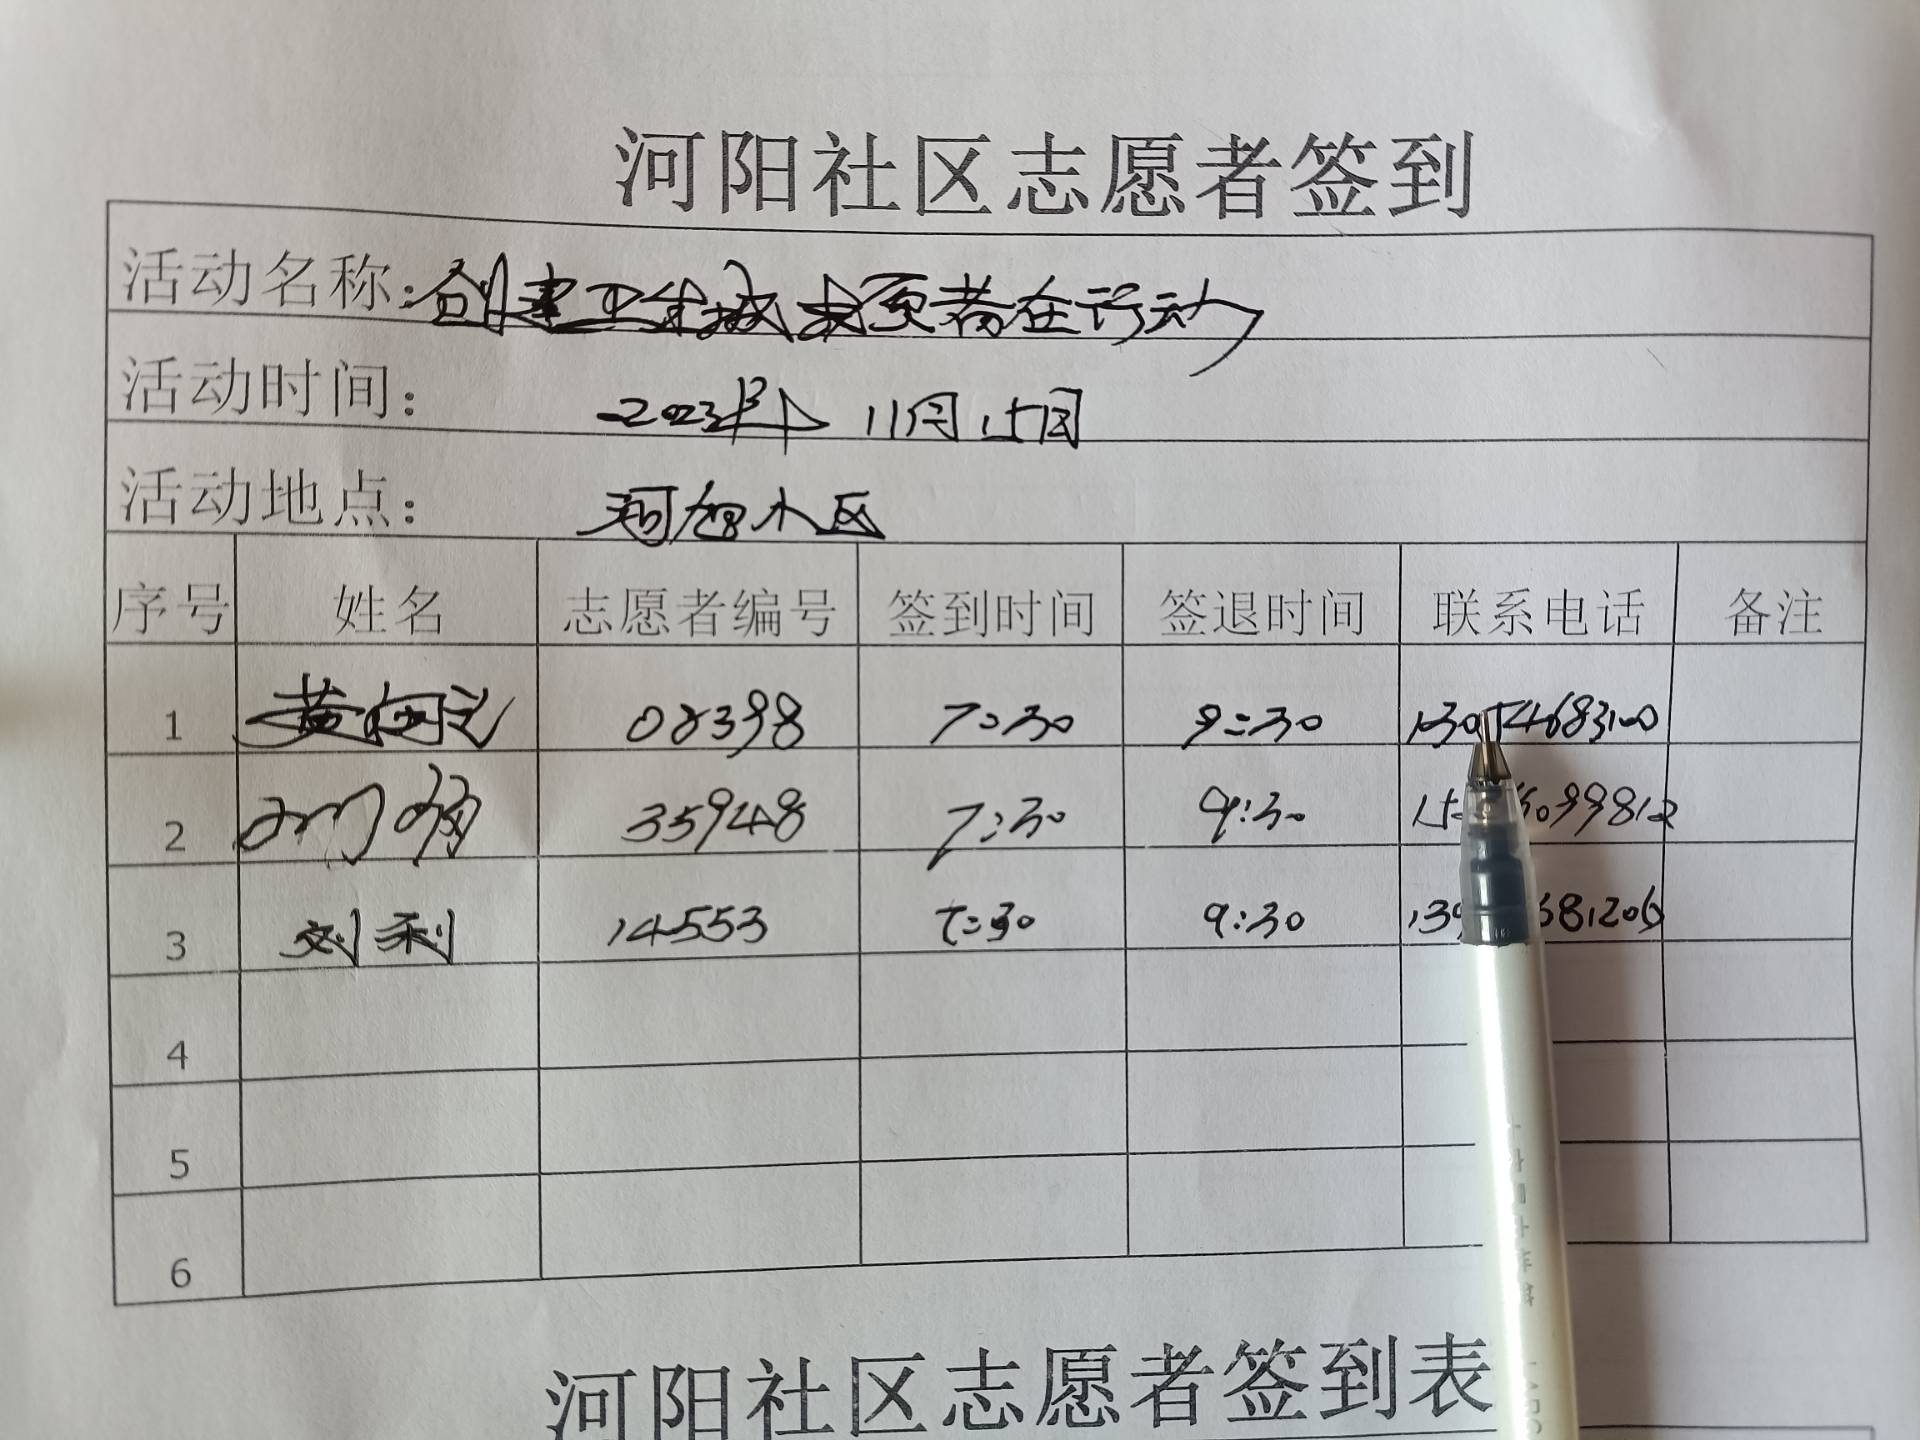 河阳社区志愿者签到
活动名称：创建卫生城志愿者在行动
活动时间： 2023年 11月15日
活动地点： 河旭小区
序号 姓名 志愿者编号 签到时间 签退时间 联系电话 备注
1 黄 08398 7:30 9:30
2 35948 7:30 9:30
3 刘利 14553 7:30 9:30
4
5
6
河阳社区志愿者签到表